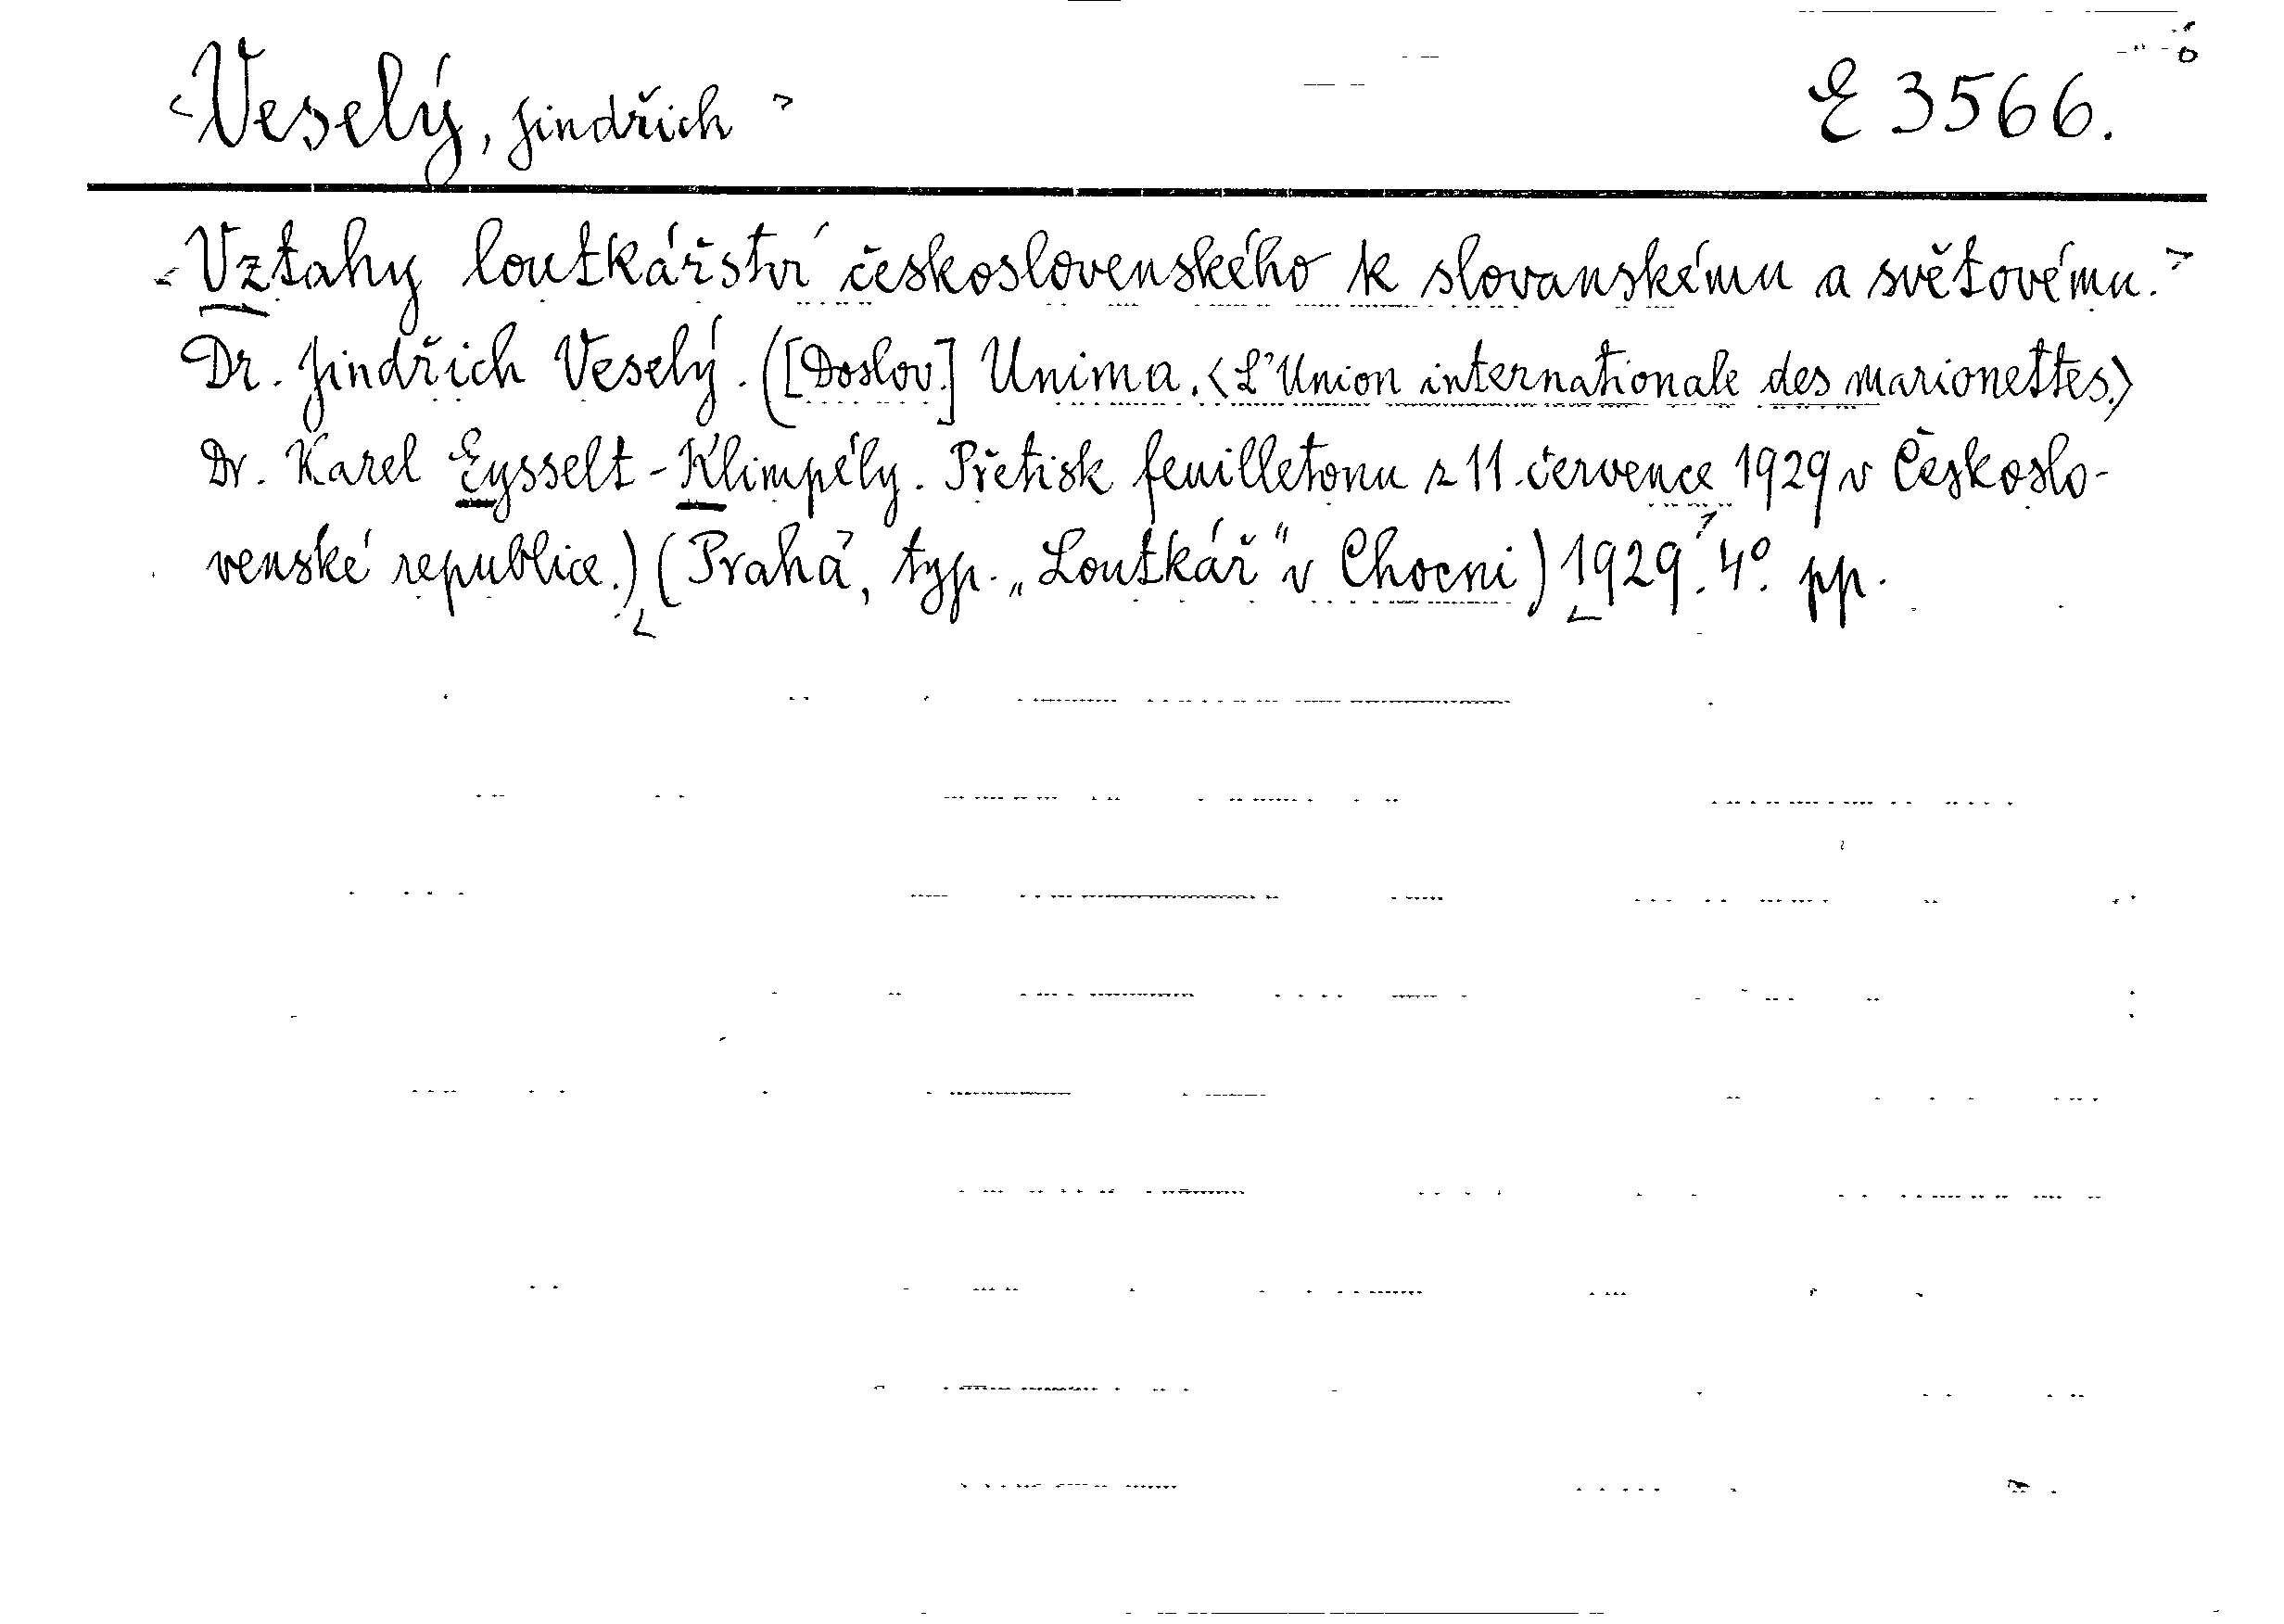 <Veselý, Jindřich>
E 3566.
<Vztahy loutkářství československého k slovanskému a světovému.>
Dr. Jindřich Veselý. ([Doslov.] Unima. <L'Union internationale des marionettes.>
Dr. Karel Eysselt-Klimpély. Přetisk feuilletonu z 11. července 1929 v Českoslo-
venské republice.) (Praha, typ. „Loutkář“ v Chocni) 1929. 4°. pp.